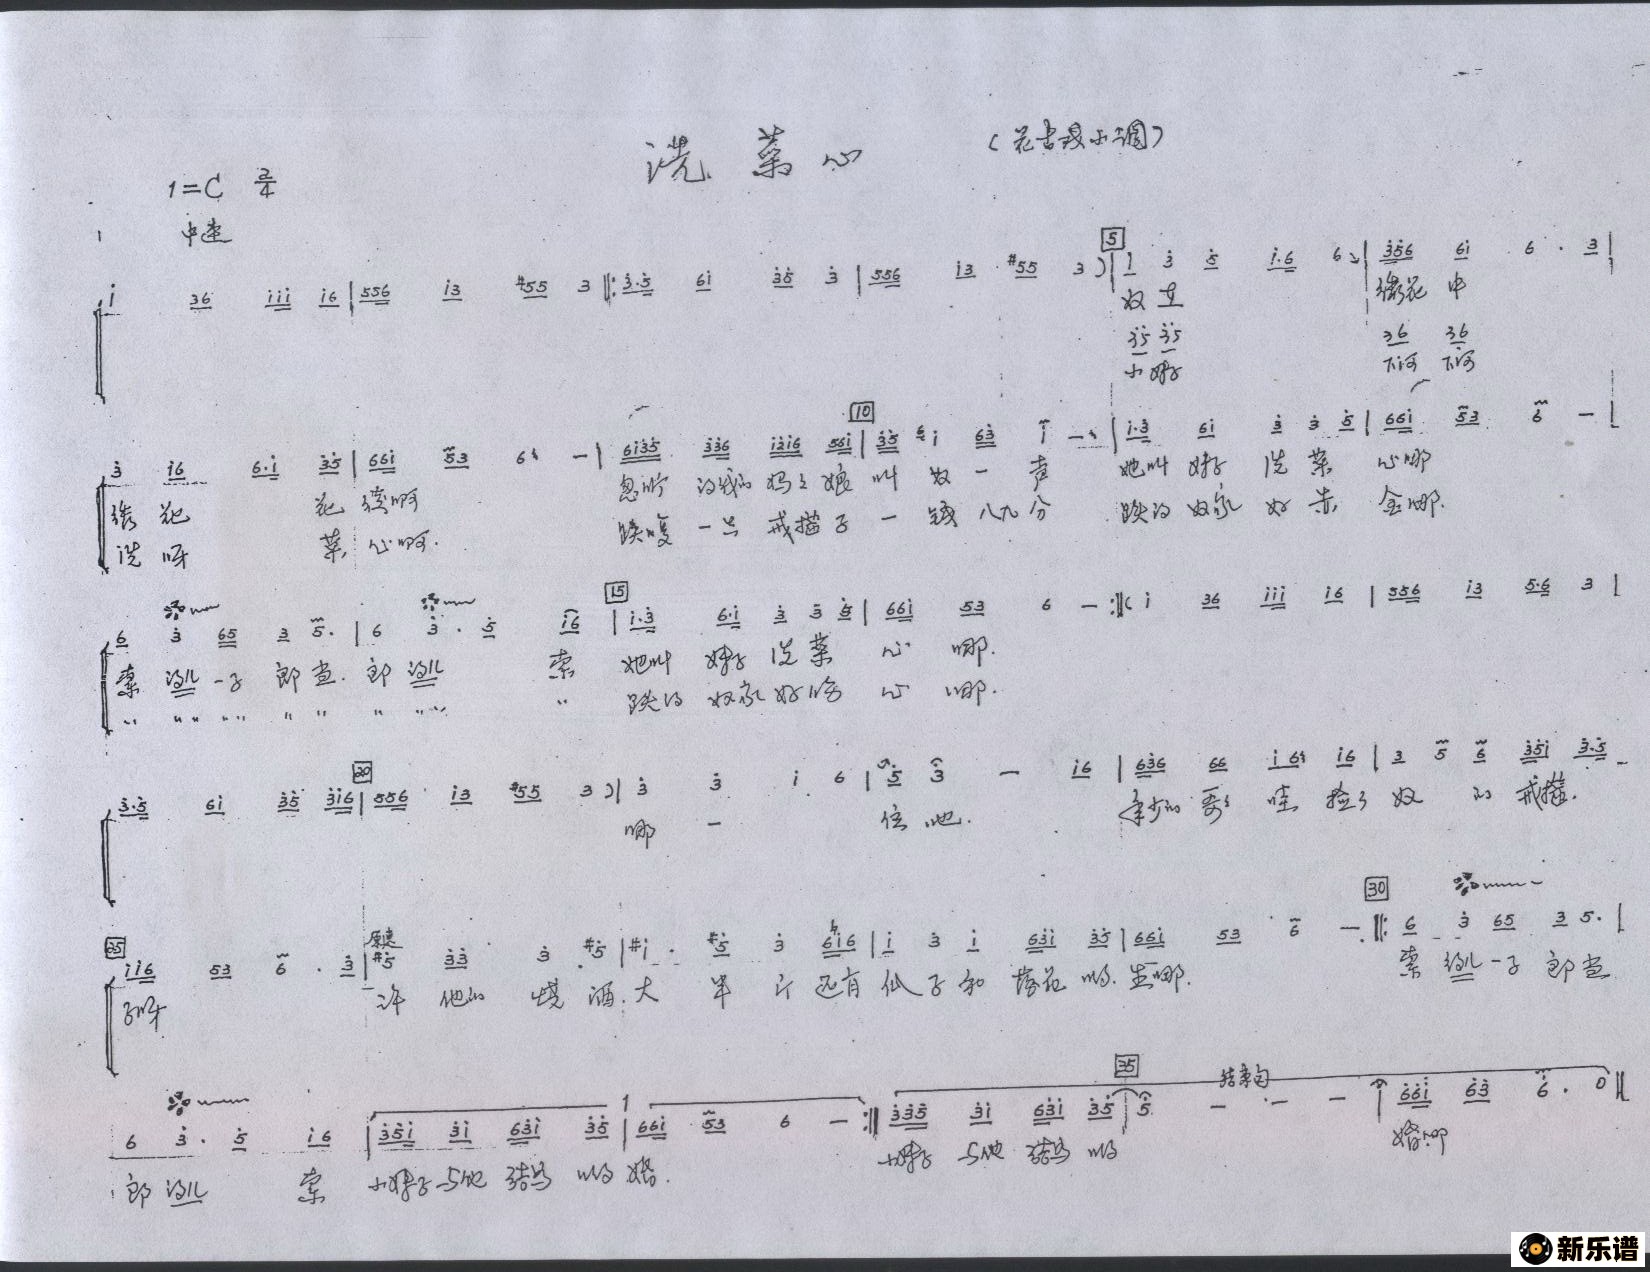 洗菜心 （花古戏小调）
1=C 2/4
中速
5
i 36 iii i6 | 556 i3 #55 3 ‖: 3.5 6i 35 3 | 556 i3 #55 3 ) | i 3 5 i.6 6 | 356 6i 6 . 3 |
奴在 绣花中
35 35 36 36
小妹子 下河 下河
10
3 i6 6.i 35 | 66i 53 6 - | 6i35 336 i2i6 56i | 35 i 63 i - | i.3 6i 3 3 5 | 66i 53 6 - |
绣花 花绣啊 忽听得我的妈妈娘叫奴一声 她叫妹子洗菜心哪
洗呀 菜心啊. 跌嘎一只戒指子一钱八九分 跌的奴家好赤金哪.
15
6 3 65 3 5. | 6 3 . 5 i6 | i.3 6.i 3 3 5 | 66i 53 6 - :‖ ( i 36 iii i6 | 556 i3 5.6 3 |
索得儿一子郎当. 郎得儿 索 她叫妹子洗菜心哪.
〃 〃 〃 〃 〃 〃 〃 〃 〃 跌的奴家好 心哪.
20
3.5 6i 35 3i6 | 556 i3 #55 3 ) | 3 3 i 6 | 5 3 - i6 | 636 66 i 6 i6 | 3 5 6 35i 3.5
哪一 位他. 年少的哥哥哇捡了奴的戒指.
25 30
原速
ii6 53 6 . 3 | #5 33 3 #5 | #i . #5 3 6i6 | i 3 i 63i 35 | 66i 53 6 - ‖: 6 3 65 3 5. |
子呀 许他的烧酒.大半斤还有瓜子和落花的.生哪. 索得儿一子郎当
35
结束句
6 3 . 5 i6 | 35i 3i 63i 35 | 66i 53 6 - :‖ 335 3i 63i 35 | 5 - - - | 66i 63 6 . 0 ‖
郎得儿 索 小妹子与他结为的婚. 小妹子与他结为的 婚哪
新乐谱